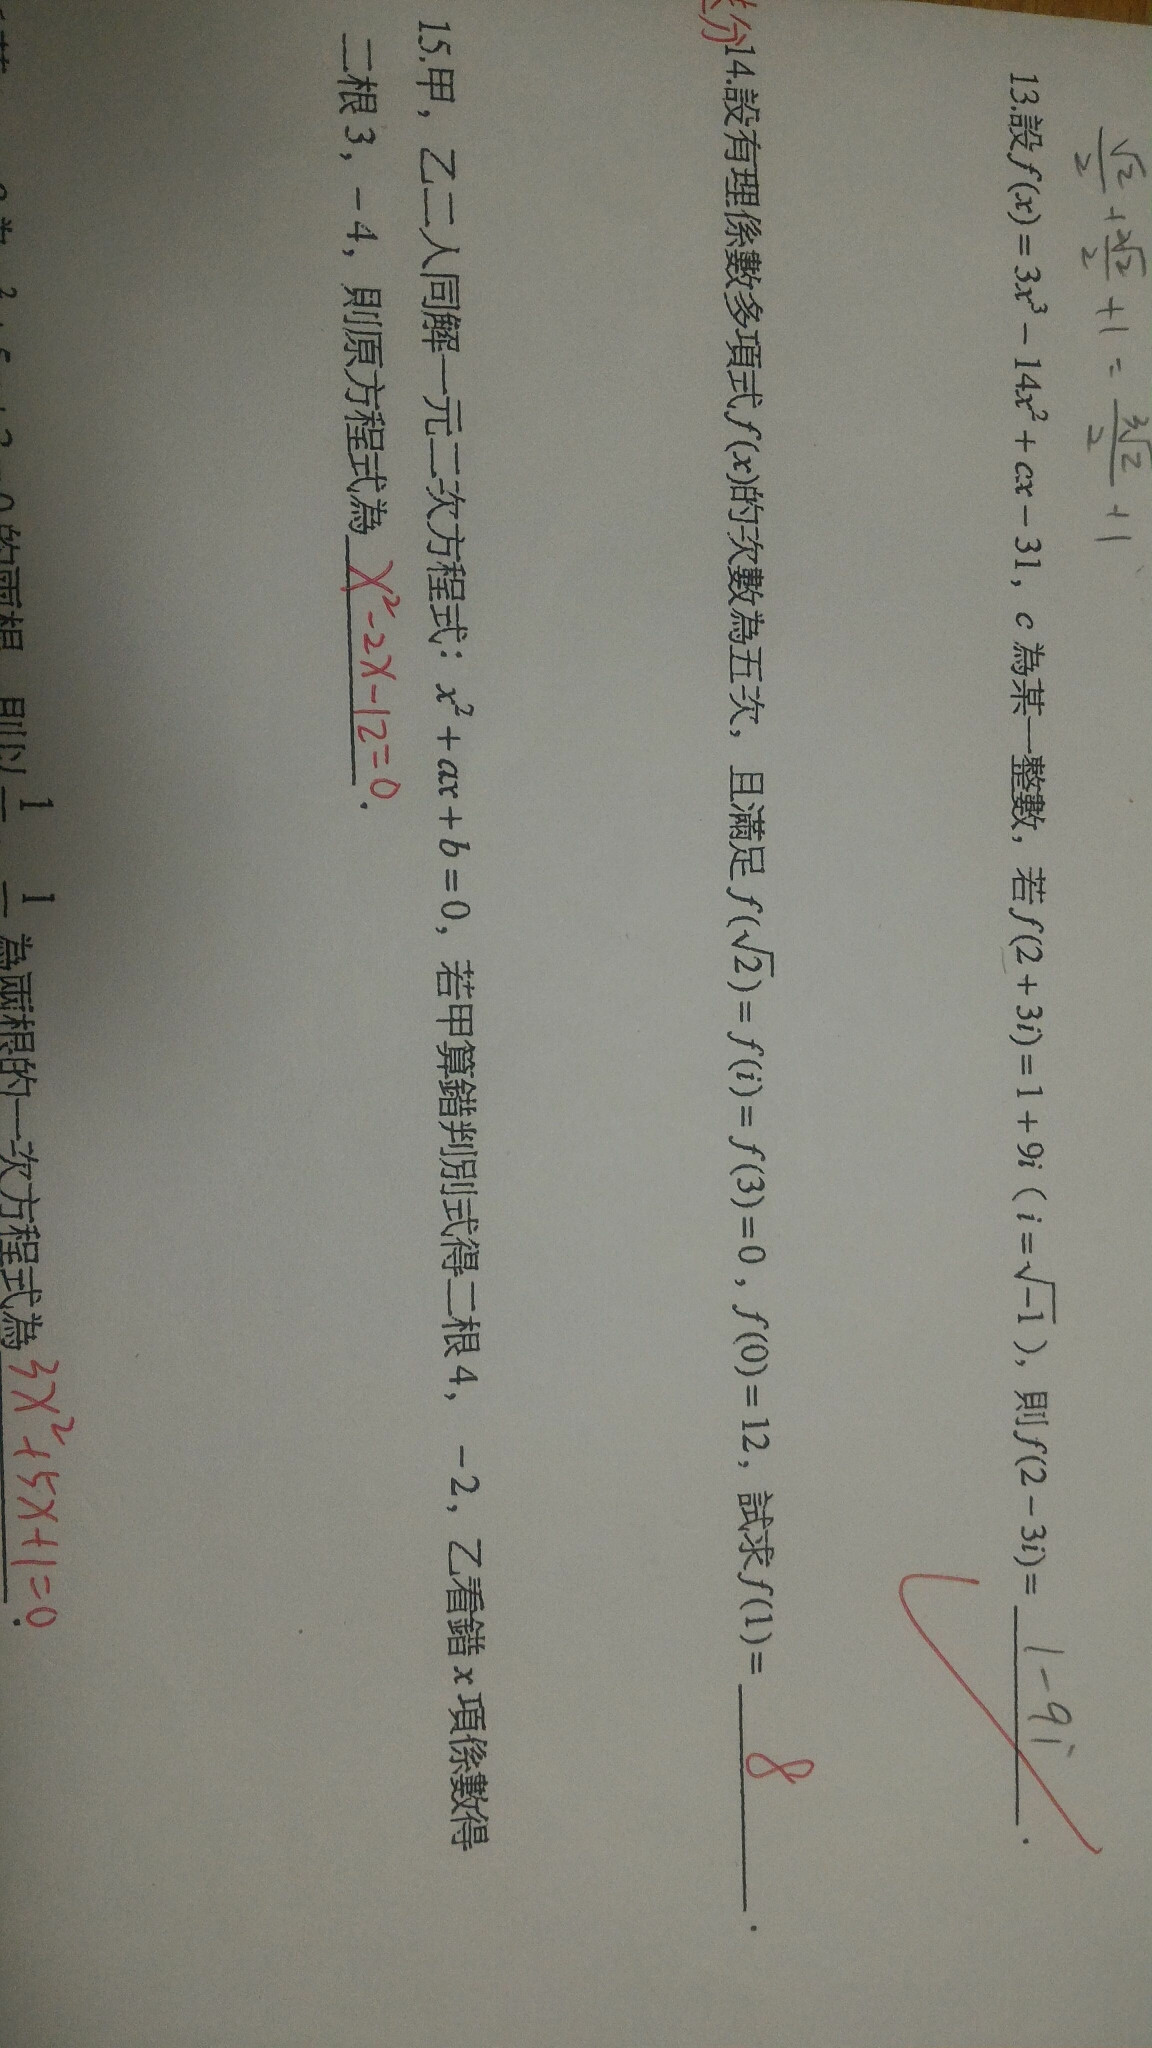 √2/2 + 2√2/2 + 1 = 3√2/2 + 1
13.設 f(x)=3x³－14x²＋cx－31，c 為某一整數，若 f(2＋3i)=1＋9i（i=√-1），則 f(2－3i)= 1-9i ．
分
14.設有理係數多項式 f(x)的次數為五次，且滿足 f(√2)=f(i)=f(3)=0，f(0)=12，試求 f(1)= 8 ．
15.甲，乙二人同解一元二次方程式：x²＋ax＋b=0，若甲算錯判別式得二根 4，－2，乙看錯 x 項係數得
二根 3，－4，則原方程式為 x²-2x-12=0 ．
的兩根 則以 1 1 為兩根的一次方程式為 3x²+5x+1=0 .